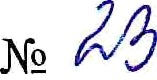 № 23